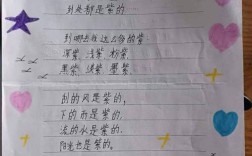 到处都是紫的
到哪去找这么多的紫
深紫、浅紫、粉紫
黑紫、淡紫、墨紫
刮的风是紫的,
下的雨是紫的,
流的水是紫的,
阳光也是紫的。